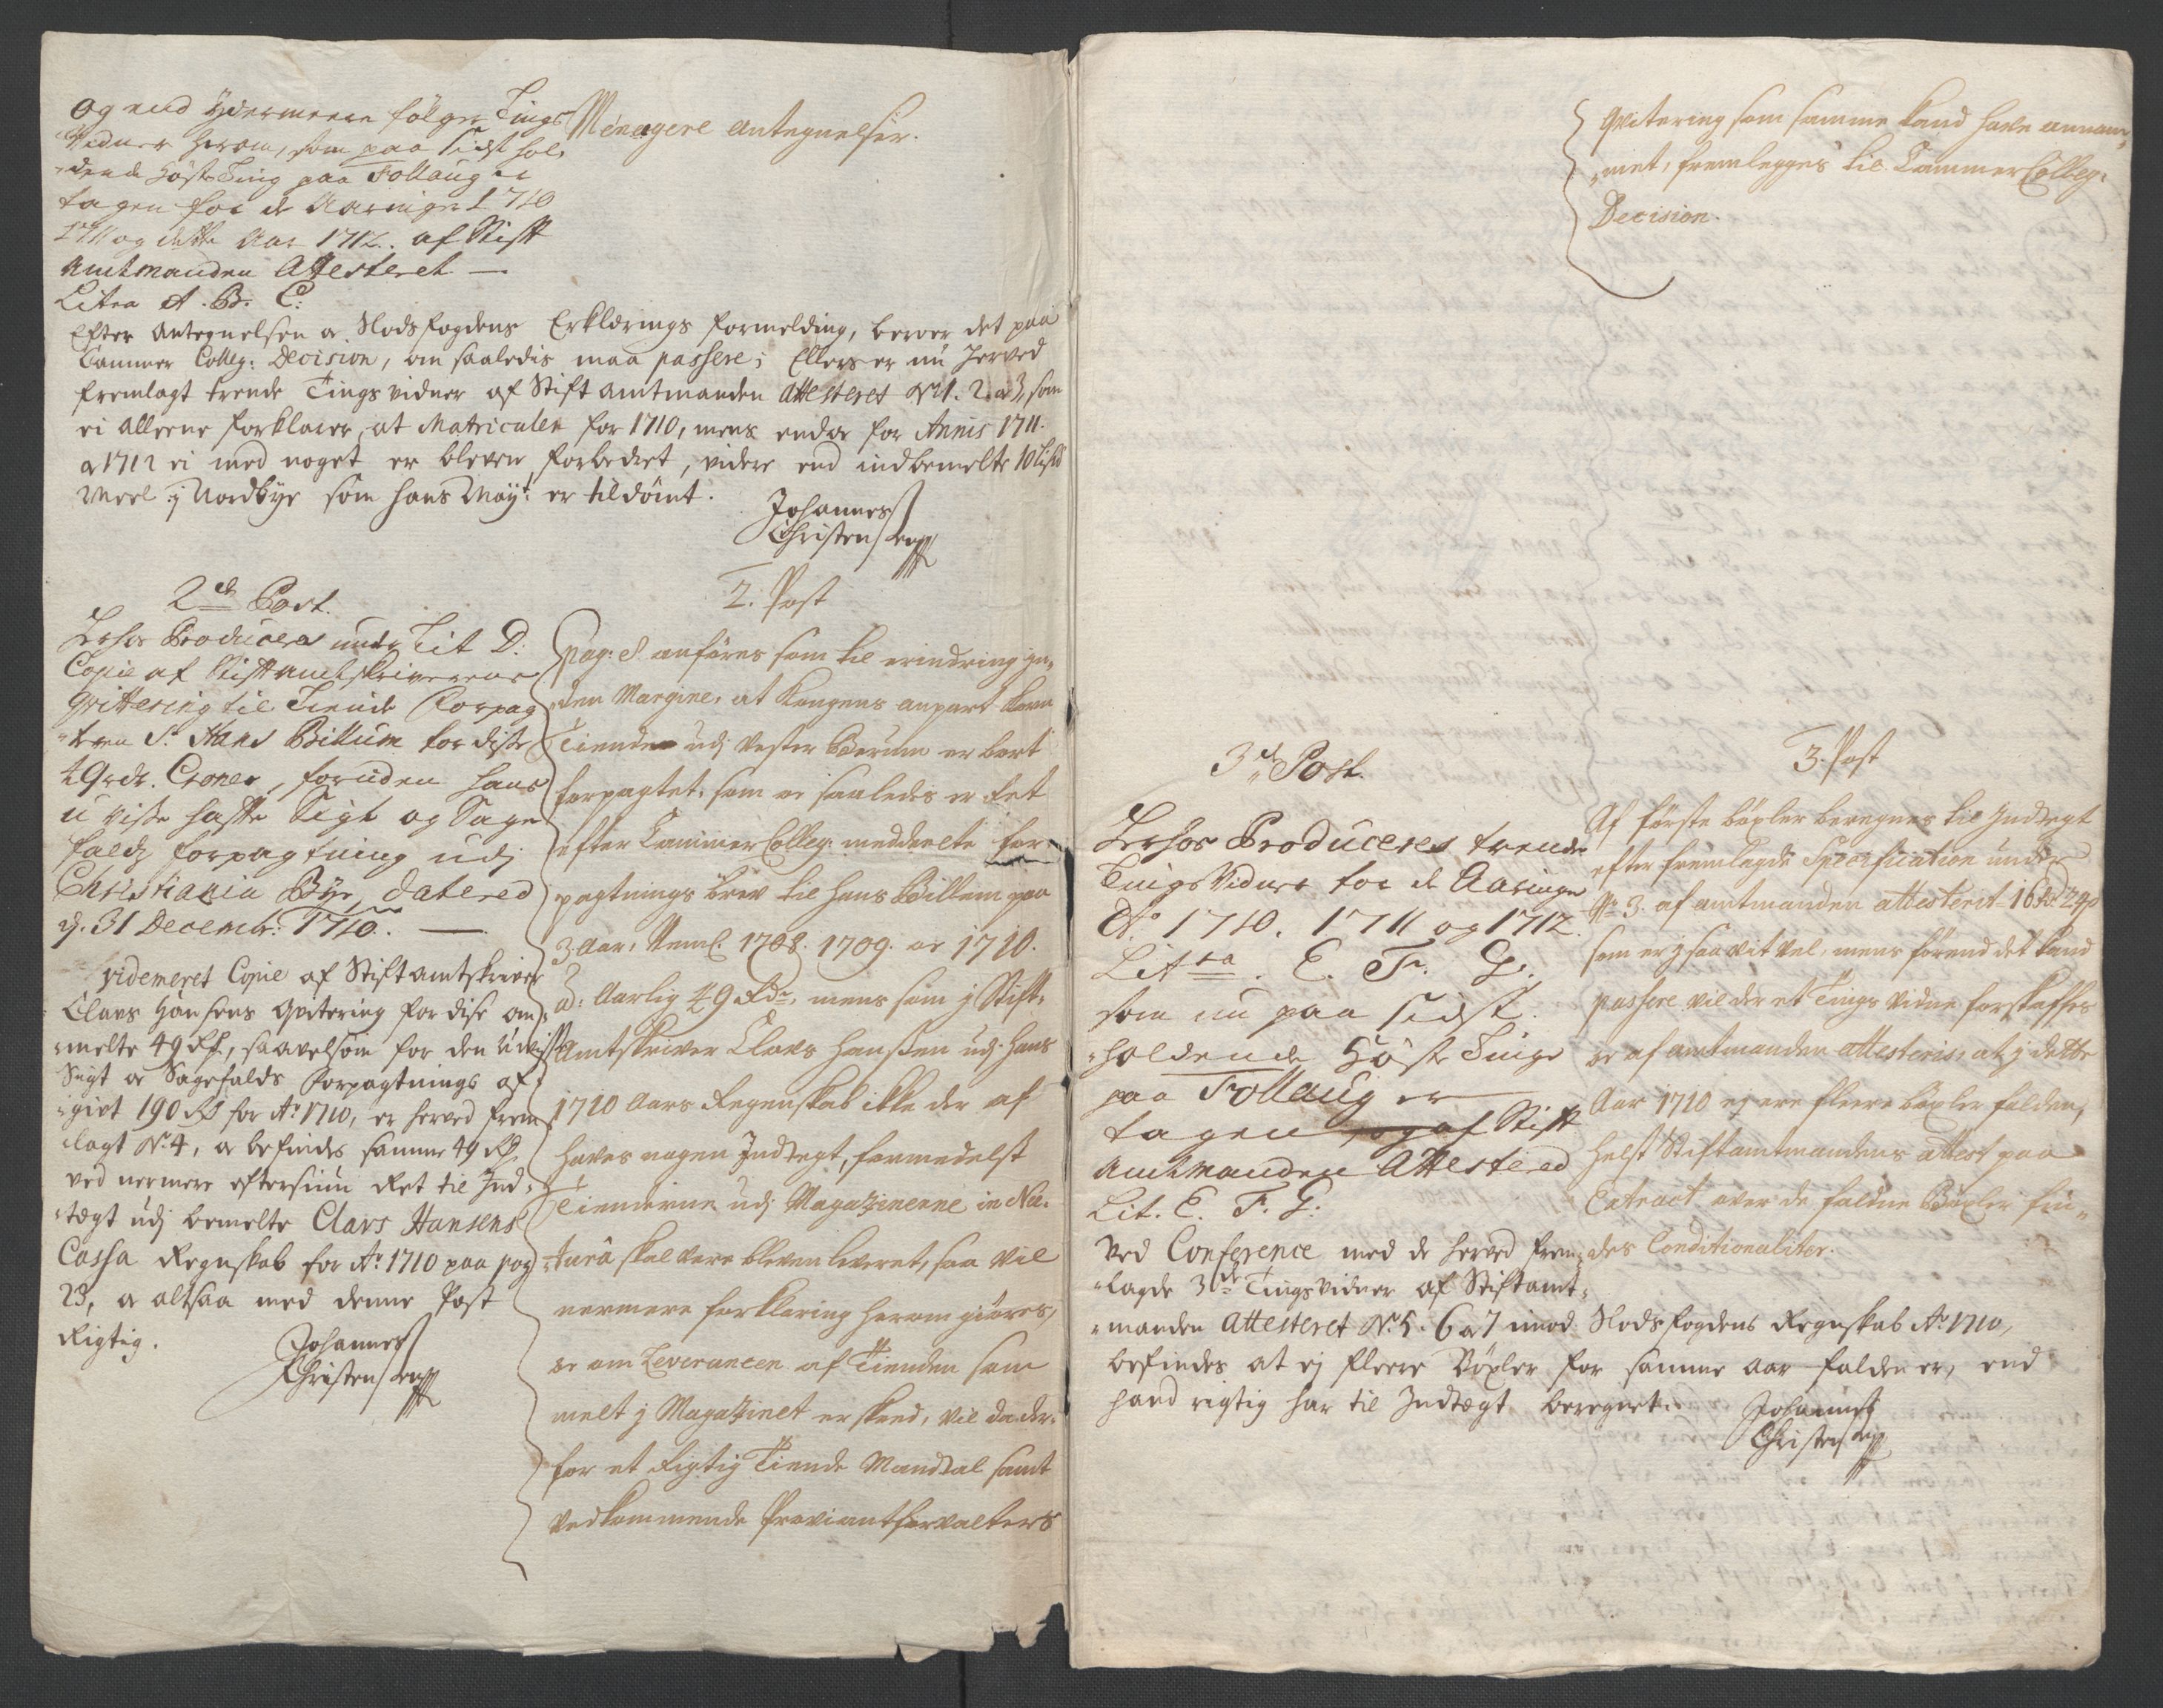 og end ydermeere følger Tings
Vidner herom, som paa sidst hol¸
¸dende Høste Ting paa Follaug er
tagen for de Aaringer 1710
1711 og dette Aar 1712. af Stift
Amtmanden Attesteret —
Litra A. B. C:
Menagere Antegnelser.
Efter Antegnelsen oc Slodsfogdens Erklærings formelding, beroer det paa
Cammer Colleg: Decision, om saaledis maa passere; Ellers er nu herved
fremlagt trende Tingsvidner af Stift amtmanden Attesteret No 1. 2. oc 3, som
ei alleene forklarer, at Matriculen for 1710, mens endoc for Annis 1711.
oc 1712 ei med noget er bleven forbedret, videre end indbemelte 10 Lispd
Meel j Nordbye som hans Mayt: er tildømt.
Johannes
Christensen
2de Post.
Herhos Produceres under Lit D:
Copie af Stiftamtskriverens
Qvittering til Tiende Forpag
¸teren Sr. Hans Billum for disse
49 rdr. Croner, foruden hans
uvisse hafte Sigt og Sage
falds forpagtning udj
Christiania Bye, datered
d. 31 Decembr: 1710. —
Videmeret Copie af Stiftamtskriver
Claus Hansens Qvitering for disse om¸
¸melte 49 Rd, saavelsom for den Uvisse
Sigt oc Sagefalds Forpagtnings af¸
¸givt 190 Rd for Ao 1710, er herved frem
¸lagt No. 4, oc befindes samme 49 Rd,
ved nermere eftersiun Ret til Ind¸
¸tægt udj bemelte Claus Hansens
Cassa Regnskab for Ao 1710 paa pag
23, oc altsaa med denne Post
Rigtig.
Johannes
Christensen
2. Post
pag: 8 anføres som til erindring ju¸
¸den Margine, at Kongens anpart Korn
Tiende udj Vester Berum er bort
forpagtet, som oc saaledes er Ret
efter Cammer Colleg: meddeelte for¸
pagtnings brev til Hans Billum paa
3 Aar, Neml. 1708. 1709. oc 1710.
á: Aarlig 49 Rdr, mens som j Stift¸
Amtskriver Claus Hansen udj hans
1710 Aars Regenskab ikke der af
haves nogen Indtegt, formedelst
Tienderne udj Magazinerne in Na¸
¸turâ skal være bleven leveret, saa vil
nermere forklaring herom giøres,
oc om Leverancen af Tienden som
melt j Magazinet er skeed, vil da der¸
for et Rigtig Tiende Mandtal samt
vedkommende Proviantforvalters
Qvitering som samme kand have annam¸
¸met, fremlegges til Cammer Colleg:
Decision.
3de Post.
Herhos Produceres trende
Tings Vidner for de Aaringer
Ao. 1710. 1711 og 1712.
Litra. E. F. G.
som nu paa sidst
¸holdende Høste Tinge
paa Follaug er
tagen og af Stift
Amtmanden Attestered
Lit. E. F. G:
Ved Conference med de herved frem¸
¸lagde 3de Tingsvidner af Stiftamt¸
¸manden Attesteret No. 5. 6 oc 7 imod Slodsfogdens Regnskab Ao 1710,
befindes at ej fleere Bøxler for samme Aar falden er, end
hand rigtig har til Indtægt beregnet.
Johannes
Christensen
3. Post
Af første bøxler beregnes til Indtegt
efter fremlagde Specification under
No 3. af amtmanden attesterit 16 Rd 24 s
som er j saa vit vel, mens førend det kand
passere vil der et Tings vidne forskaffes
oc af amtmanden attesteris, at j dette
Aar 1710 ej ere fleere bøxler falden,
helst Stiftamtmandens attest paa
Extract over de faldne Bøxler fin¸
¸des Conditionaliter.